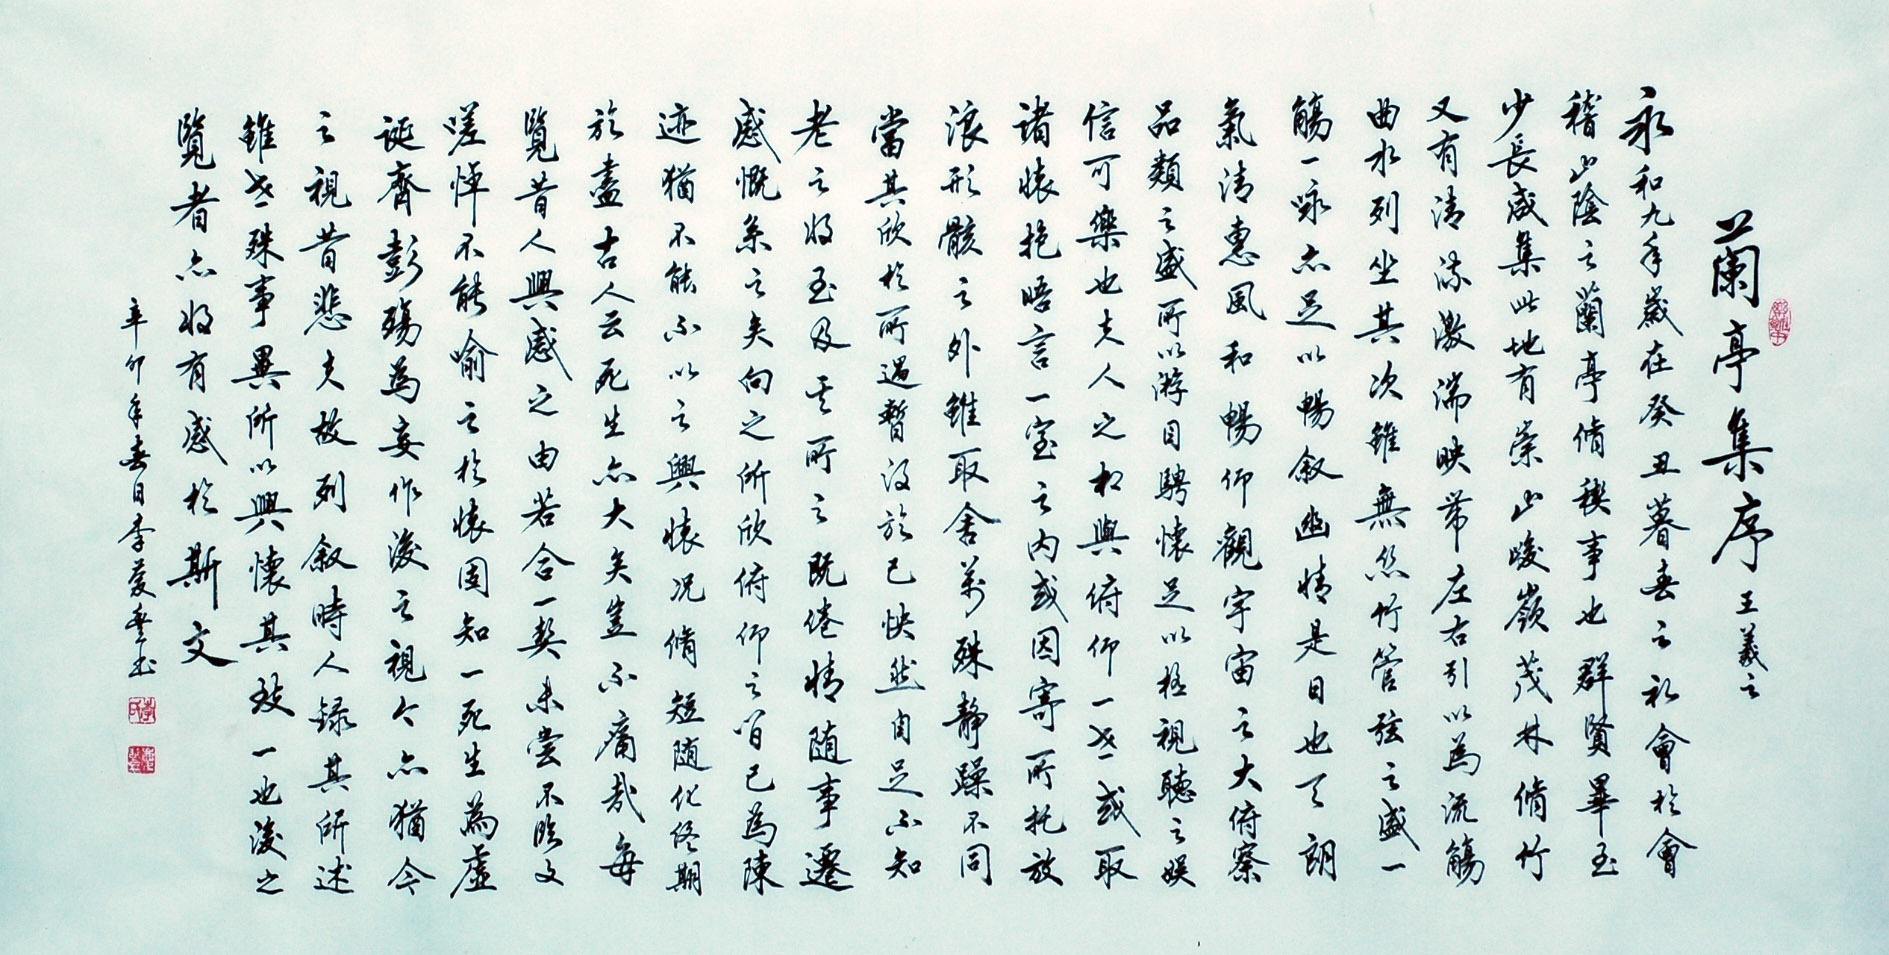 蘭亭集序 王羲之
永和九年歲在癸丑暮春之初會於會
稽山陰之蘭亭脩禊事也群賢畢至
少長咸集此地有崇山峻嶺茂林脩竹
又有清流激湍映帶左右引以為流觴
曲水列坐其次雖無絲竹管弦之盛一
觴一詠亦足以暢敘幽情是日也天朗
氣清惠風和暢仰觀宇宙之大俯察
品類之盛所以游目騁懷足以極視聽之娛
信可樂也夫人之相與俯仰一世或取
諸懷抱晤言一室之內或因寄所托放
浪形骸之外雖取舍萬殊靜躁不同
當其欣於所遇暫得於己怏然自足不知
老之將至及其所之既倦情隨事遷
感慨系之矣向之所欣俯仰之間已為陳
迹猶不能不以之興懷況脩短隨化終期
於盡古人云死生亦大矣豈不痛哉每
覽昔人興感之由若合一契未嘗不臨文
嗟悼不能喻之於懷固知一死生為虛
誕齊彭殤為妄作後之視今亦猶今
之視昔悲夫故列敘時人錄其所述
雖世殊事異所以興懷其致一也後之
覽者亦將有感於斯文
辛卯年春日李